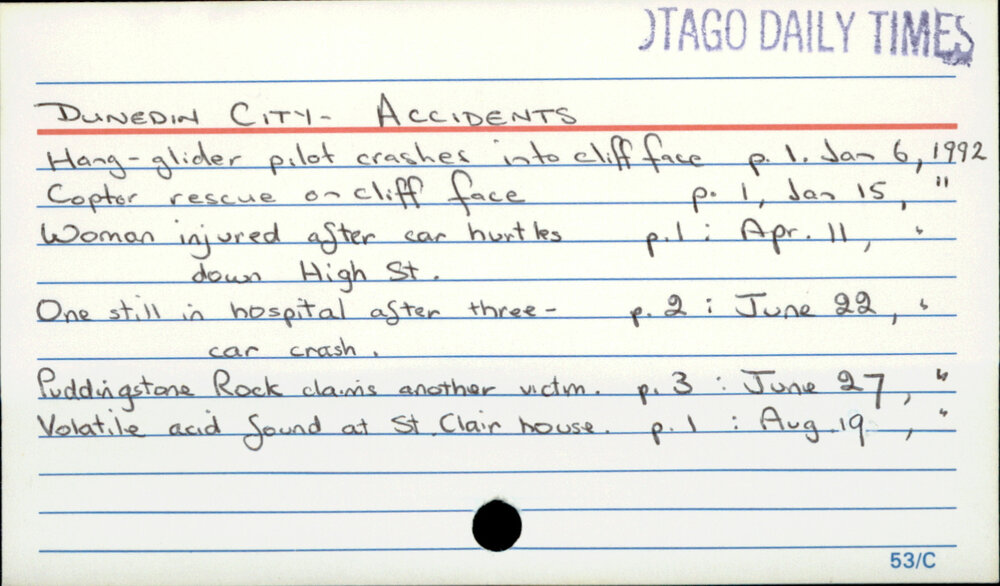 OTAGO DAILY TIMES
DUNEDIN CITY- ACCIDENTS
Hang-glider pilot crashes into cliff face p. 1. Jan 6, 1992
Coptor rescue on cliff face p. 1, Jan 15, "
Woman injured after car hurtles p.1 : Apr. 11, "
down High St.
One still in hospital after three- p. 2 : June 22, "
car crash.
Puddingstone Rock claims another victim. p. 3 : June 27, "
Volatile acid found at St. Clair house. p. 1 : Aug 19, "
53/C